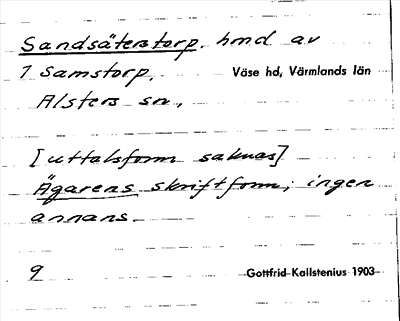 Sandsäterstorp. hmd av
1 Samstorp, Väse hd, Värmlands län
Alsters sn,
[uttalsform saknas]
Ägarens skriftform; ingen
annans.
9 Gottfrid Kallstenius 1903